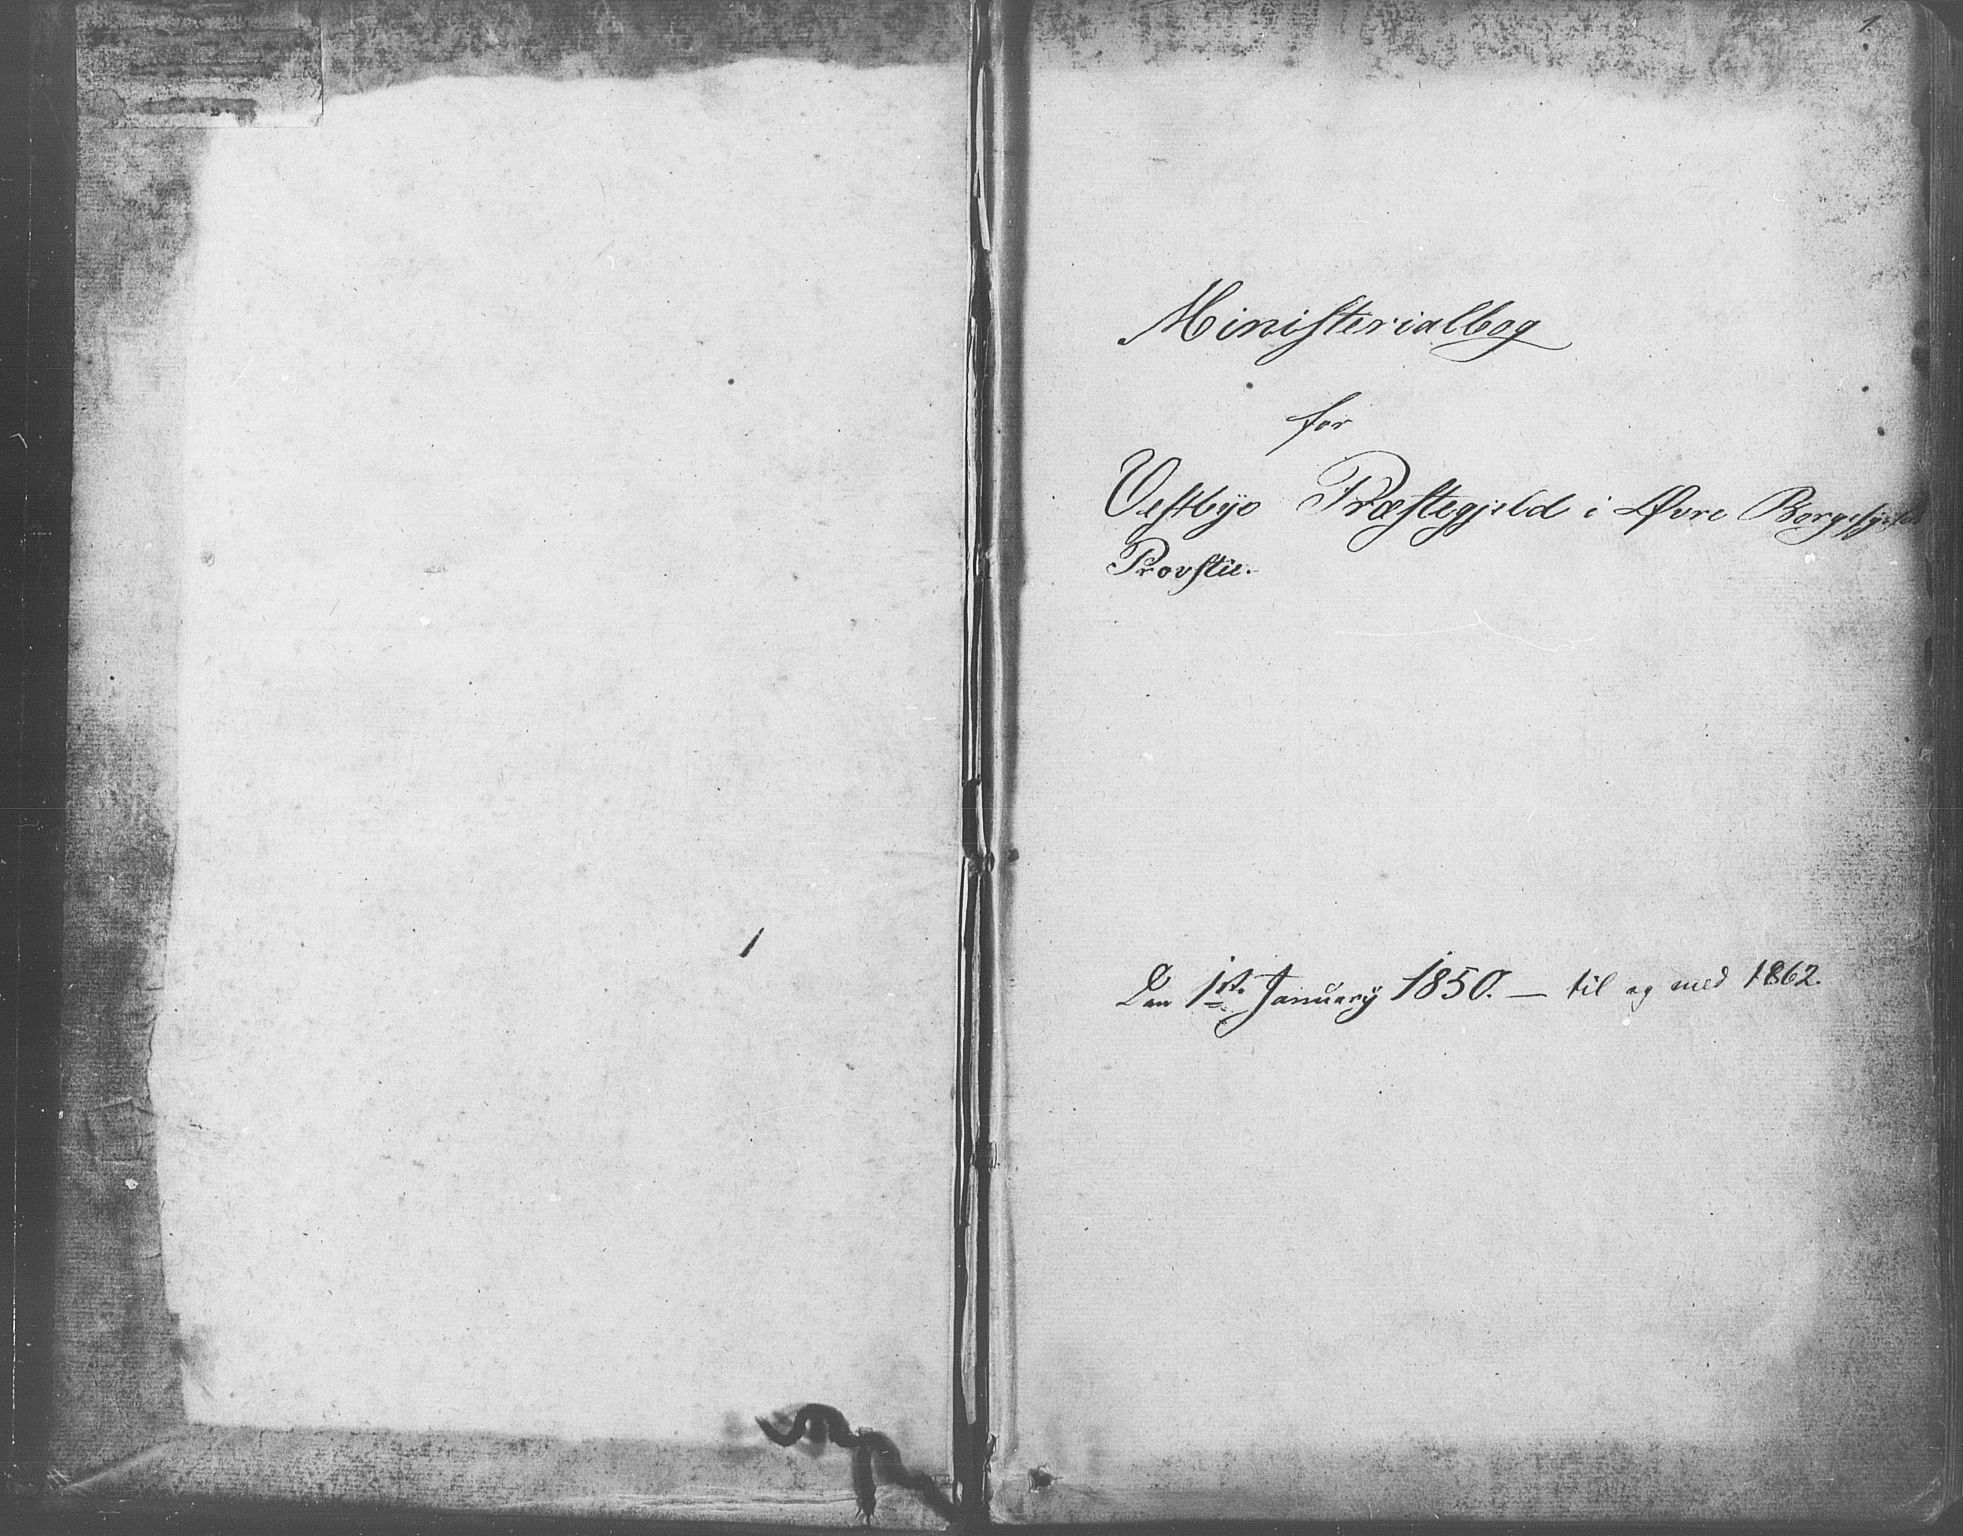 1.
Ministerialbog
for
Vestbye Præstegjeld i Øvre Borgesyssels
Provstie.
Den 1ste January 1850. — til og med 1862.